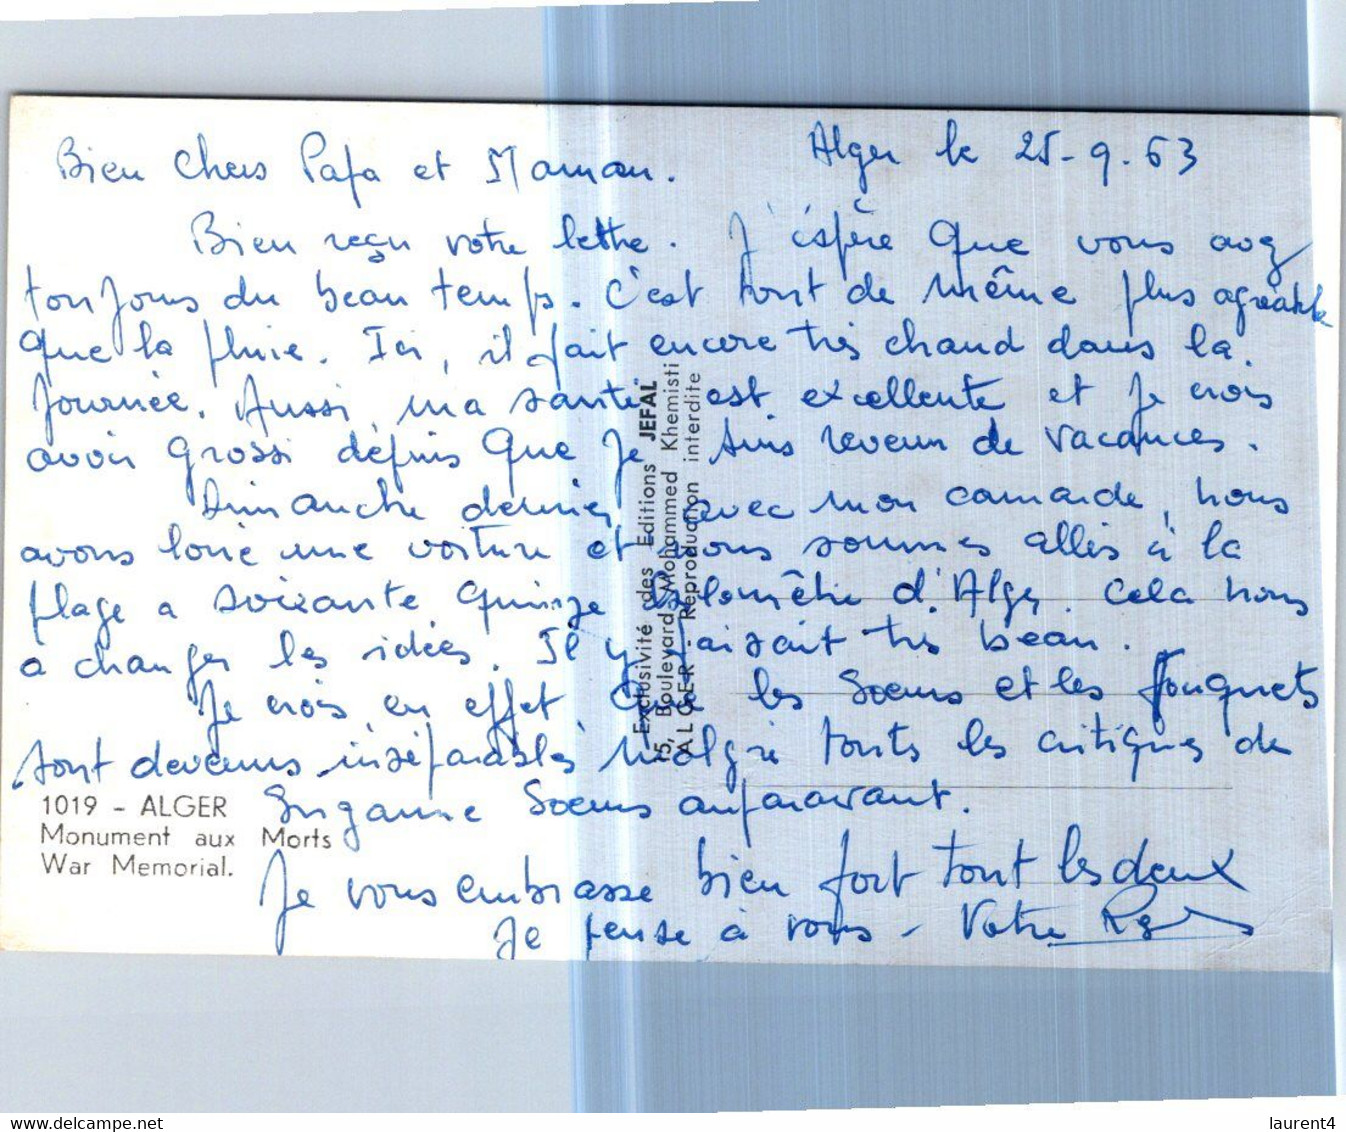 Alger le 25-9-63
Bien chers Papa et Maman.
Bien reçu votre lettre. J'éspère que vous avez
toujours du beau temps. C'est tout de même plus agréable
que la pluie. Ici, il fait encore très chaud dans la
journée. Aussi, ma santé est excellente et je crois
avoir grossi dépuis que je suis revenu de vacances.
Dimanche dernier, avec mon camarade, nous
avons loué une voiture et nous sommes allés à la
plage a soixante quinze kilomètre d'Alger. Cela nous
a changer les idées. Il y faisait très beau.
Je crois, en effet, que les Soeurs et les Fouquets
sont devenus inséparables malgré touts les critiques de
Suzanne Soeurs auparavant.
Je vous embrasse bien fort tout les deux
Je pense à vous - Votre
1019 - ALGER
Monument aux Morts
War Memorial.
Exclusivité des Editions JEFAL
15, Boulevard Mohammed Khemisti
ALGER - Reproduction interdite
www.delcampe.net
laurent4